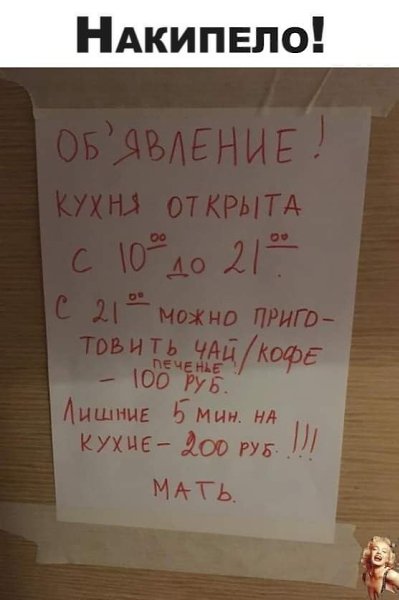 Накипело!
ОБ'ЯВЛЕНИЕ!
КУХНЯ ОТКРЫТА
С 10⁰⁰ ДО 21⁰⁰.
С 21⁰⁰ МОЖНО ПРИГО-
ТОВИТЬ ЧАЙ/КОФЕ
ПЕЧЕНЬЕ!
- 100 РУБ.
Лишние 5 мин. НА
КУХНЕ - 200 РУБ. !!!
МАТЬ.